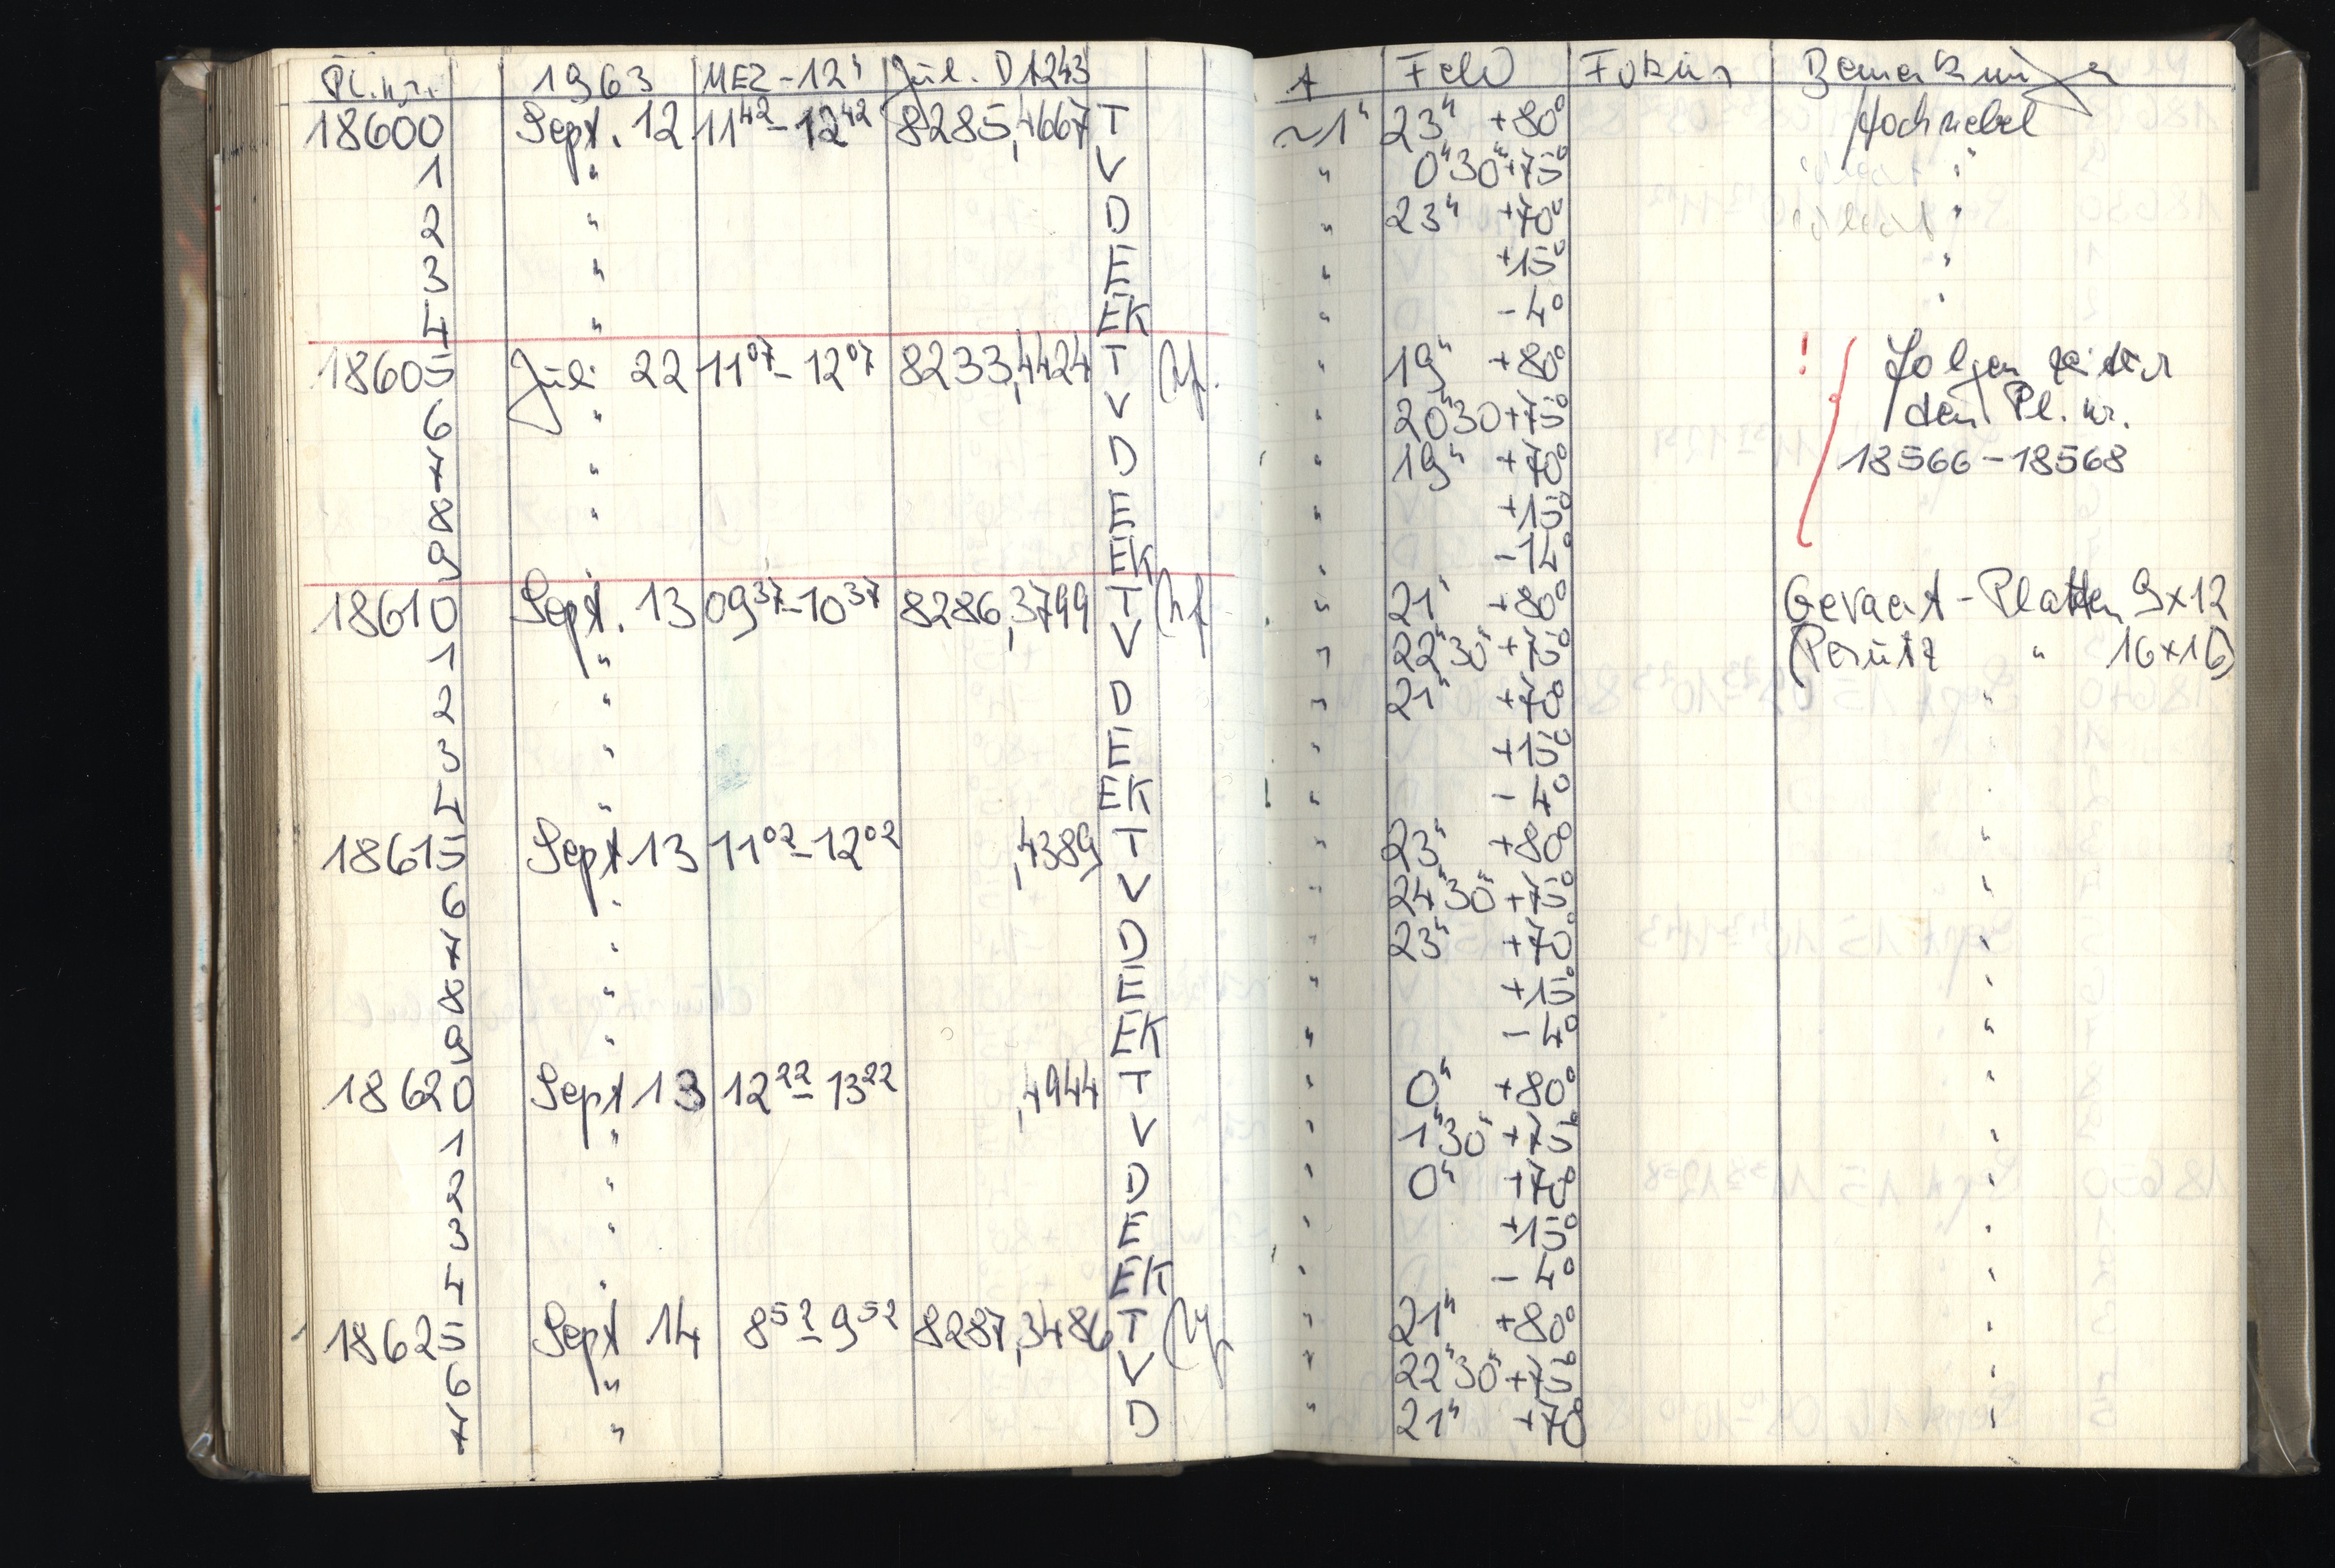 Pl.nr. 1963 MEZ-12h Jul. D 243 A Feld Fokus Bemerkungen
18600 Sept. 12 11 42 - 12 42 8285,4667 T ~1h 23h +80° Hochnebel
1 " V " 0h30m +75° "
2 " D " 23h +70° "
3 " E " +15° "
4 " EK " -4° "
18605 Juli 22 11 07 - 12 07 8233,4424 T " 19h +80° ! Folgen hinter
6 " V " 20h30 +75° den Pl. nr.
7 " D " 19h +70° 18566-18568
8 " E " +15°
9 " EK " -14°
18610 Sept. 13 09 37 - 10 37 8286,3799 T " 21h +80° Gevaert-Platten 9x12
1 " V " 22h30m +75° (Perutz " 16x16)
2 " D " 21h +70° "
3 " E " +15° "
4 " EK " -4° "
18615 Sept 13 11 02 - 12 02 ,4389 T " 23h +80° "
6 " V " 24h30m +75° "
7 " D " 23h +70° "
8 " E " +15° "
9 " EK " -4° "
18620 Sept 13 12 22 - 13 22 ,4944 T " 0h +80° "
1 " V " 1h30m +75° "
2 " D " 0h +70° "
3 " E " +15° "
4 " EK " -4° "
18625 Sept 14 8 52 - 9 52 8287,3486 T " 21h +80° "
6 " V " 22h30m +75° "
7 " D " 21h +70° "